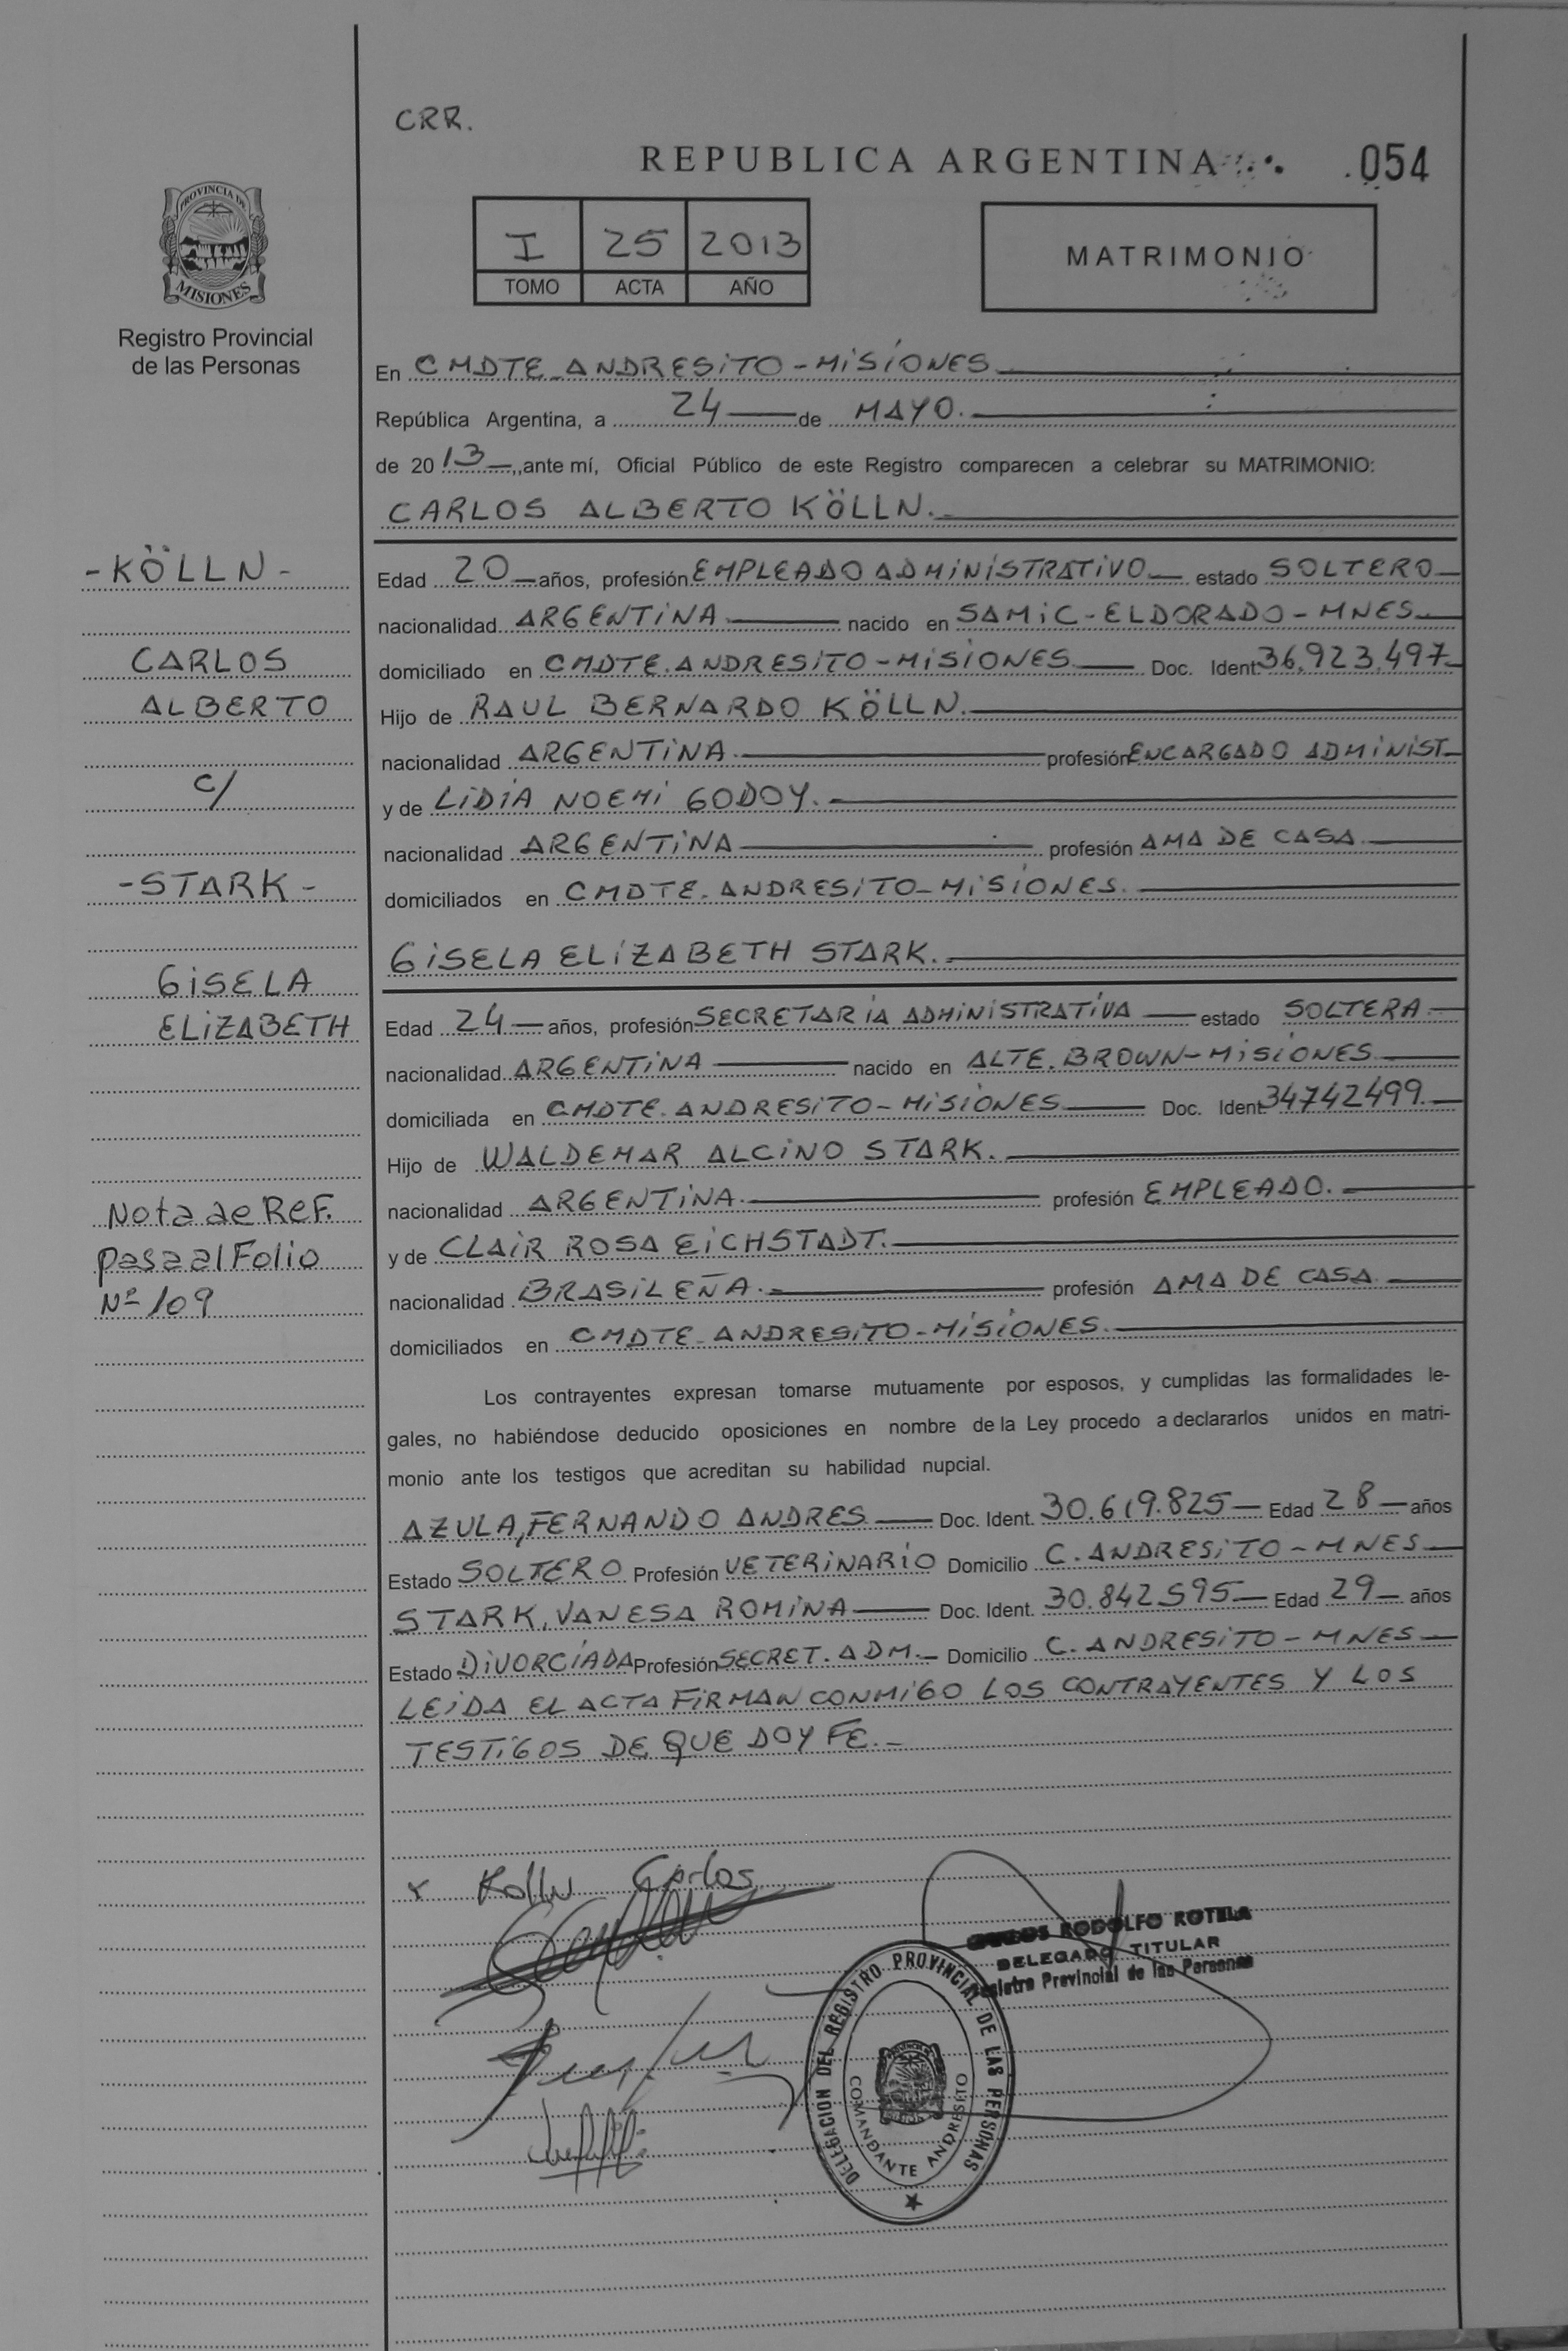 CRR.
REPUBLICA ARGENTINA
054
PROVINCIA DE
MISIONES
Registro Provincial
de las Personas
I 25 2013
TOMO ACTA AÑO
MATRIMONIO
En CMDTE. ANDRESITO - MISIONES
República Argentina, a 24 de MAYO.
de 2013, ante mí, Oficial Público de este Registro comparecen a celebrar su MATRIMONIO:
CARLOS ALBERTO KÖLLN.
- KÖLLN -
CARLOS
ALBERTO
c/
- STARK -
GISELA
ELIZABETH
Nota de Ref.
pasa al Folio
Nº 109
Edad 20 años, profesión EMPLEADO ADMINISTRATIVO estado SOLTERO
nacionalidad ARGENTINA nacido en SAMIC - ELDORADO - MNES
domiciliado en CMDTE. ANDRESITO - MISIONES Doc. Ident. 36.923.497
Hijo de RAUL BERNARDO KÖLLN.
nacionalidad ARGENTINA. profesión ENCARGADO ADMINIST
y de LIDIA NOEMI GODOY.
nacionalidad ARGENTINA profesión AMA DE CASA
domiciliados en CMDTE. ANDRESITO - MISIONES.
GISELA ELIZABETH STARK.
Edad 24 años, profesión SECRETARIA ADMINISTRATIVA estado SOLTERA
nacionalidad ARGENTINA nacido en ALTE. BROWN - MISIONES
domiciliada en CMDTE. ANDRESITO - MISIONES Doc. Ident. 34742499.
Hijo de WALDEMAR ALCINO STARK.
nacionalidad ARGENTINA. profesión EMPLEADO.
y de CLAIR ROSA EICHSTADT.
nacionalidad BRASILEÑA. profesión AMA DE CASA
domiciliados en CMDTE. ANDRESITO - MISIONES.
Los contrayentes expresan tomarse mutuamente por esposos, y cumplidas las formalidades le-
gales, no habiéndose deducido oposiciones en nombre de la Ley procedo a declararlos unidos en matri-
monio ante los testigos que acreditan su habilidad nupcial.
AZULA, FERNANDO ANDRES Doc. Ident. 30.619.825 Edad 28 años
Estado SOLTERO Profesión VETERINARIO Domicilio C. ANDRESITO - MNES
STARK, VANESA ROMINA Doc. Ident. 30.842.595 Edad 29 años
Estado DIVORCIADA Profesión SECRET. ADM. Domicilio C. ANDRESITO - MNES
LEIDA EL ACTA FIRMAN CONMIGO LOS CONTRAYENTES Y LOS
TESTIGOS DE QUE DOY FE.
x Kolln Carlos
RODOLFO ROTELA
DELEGADO TITULAR
Registro Provincial de las Personas
DELEGACION DEL REGISTRO PROVINCIAL DE LAS PERSONAS
COMANDANTE ANDRESITO